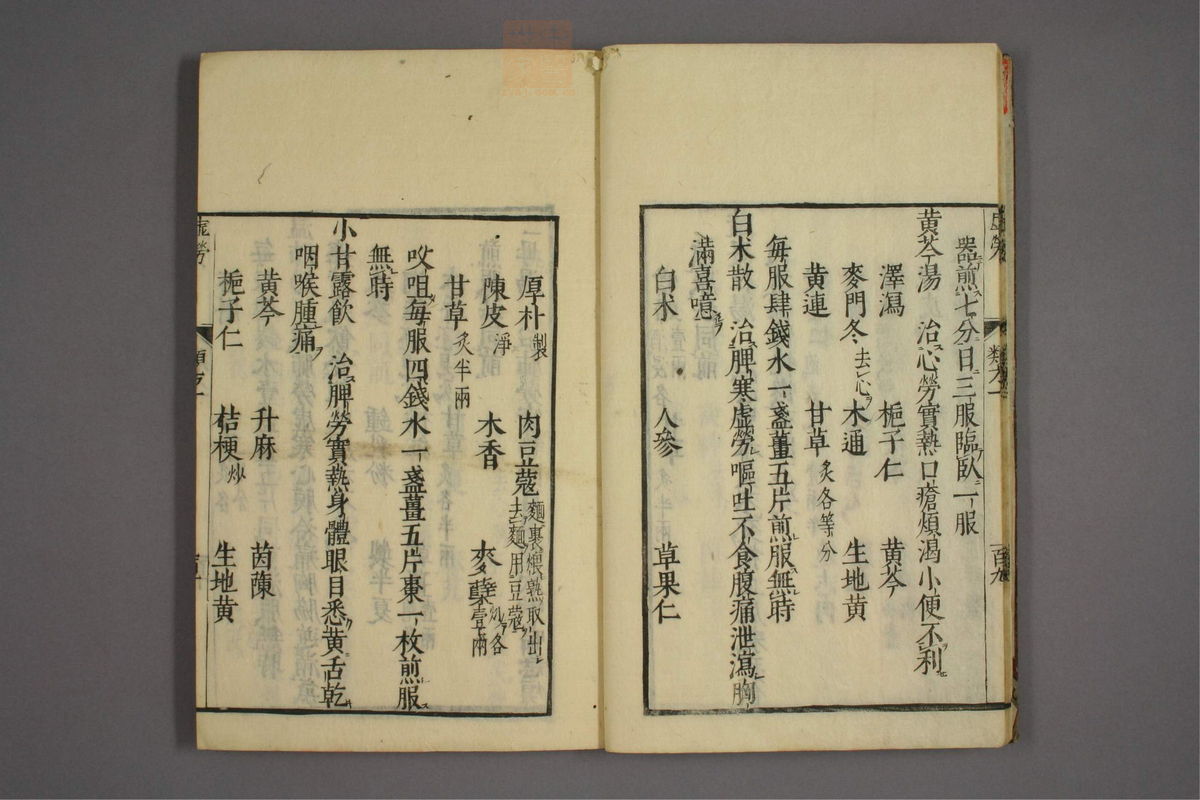 虛勞 類方一 百九
器煎七分日三服臨臥一服
黃芩湯 治心勞實熱口瘡煩渴小便不利
澤瀉 梔子仁 黃芩
麥門冬去心 木通 生地黃
黃連 甘草炙各等分
每服肆錢水一盞薑五片煎服無時
白朮散 治脾寒虛勞嘔吐不食腹痛泄瀉胸
滿喜噫
白朮 人參 草果仁
厚朴製 肉豆蔻麵裹煨熟取出去麵用豆蔻
陳皮淨 木香 麥蘗炒各壹兩
甘草炙半兩
㕮咀每服四錢水一盞薑五片棗一枚煎服
無時
小甘露飲 治脾勞實熱身體眼目悉黃舌乾
咽喉腫痛
黃芩 升麻 茵蔯
梔子仁 桔梗炒 生地黃
虛勞